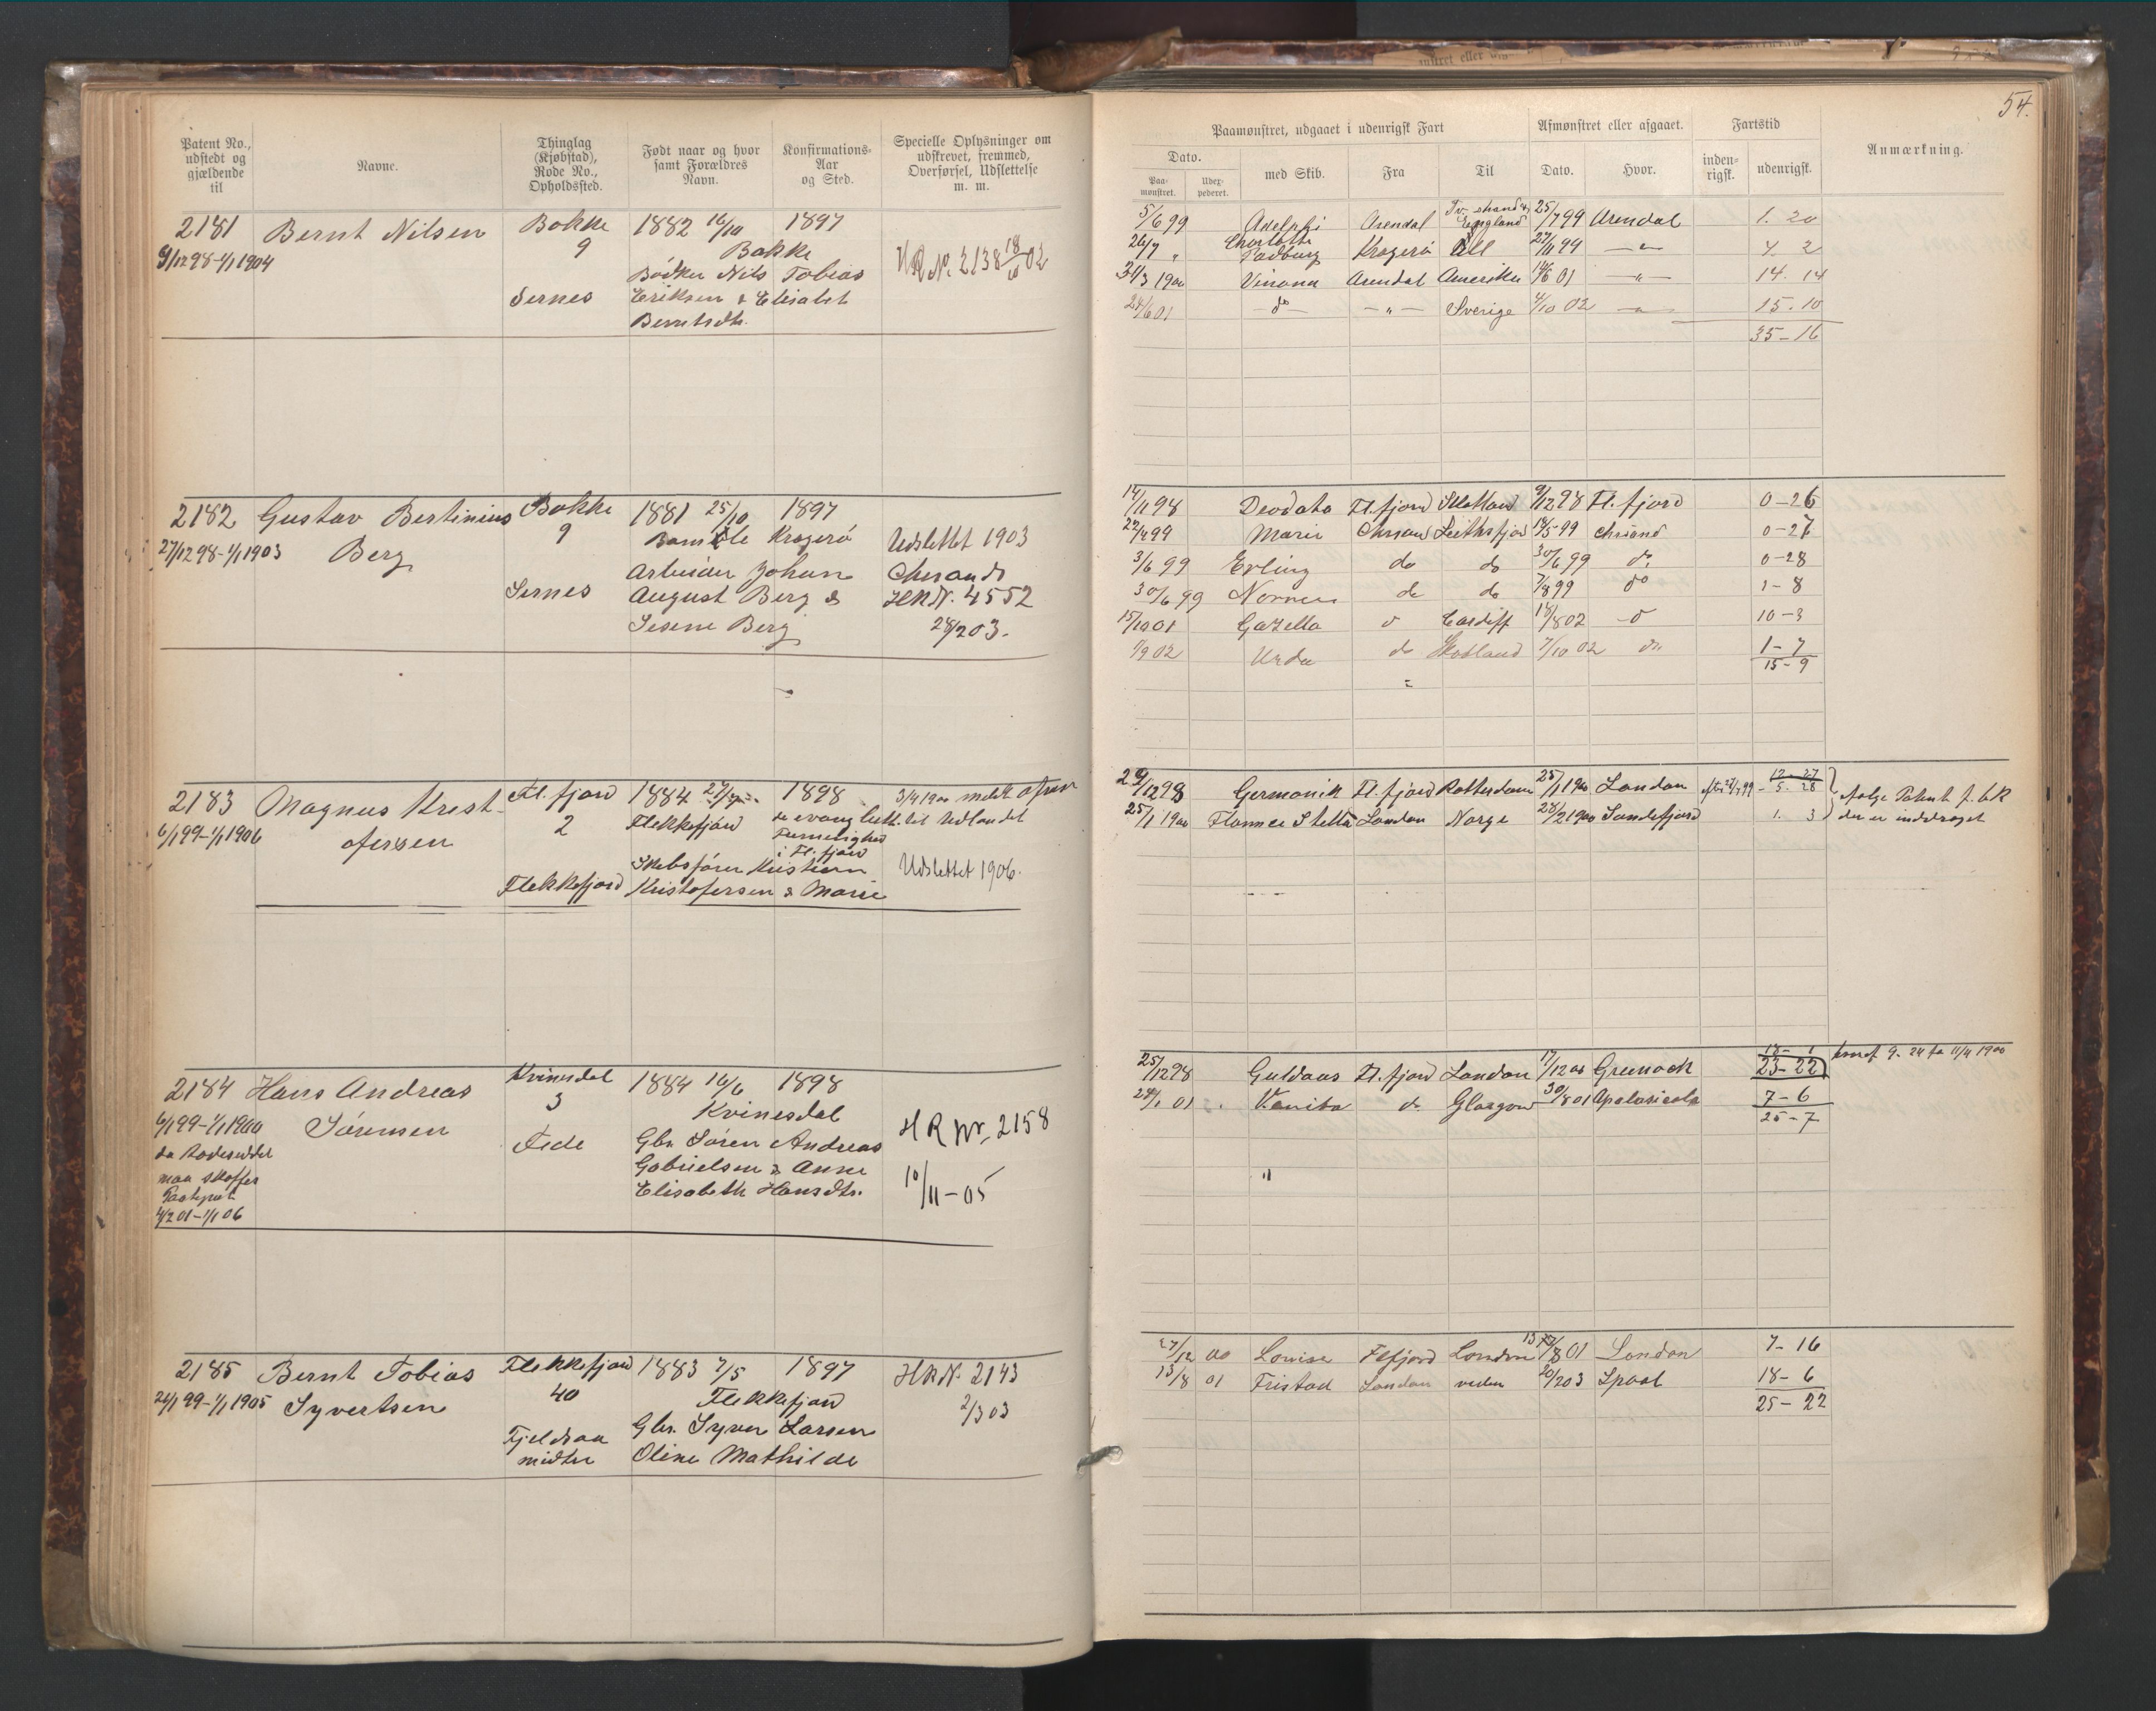 54.
Patent No., udstedt og gjældende til
Navne.
Thinglag (Kjøbstad), Rode No., Opholdssted.
Født naar og hvor samt Forældres Navn.
Konfirmations-Aar og Sted.
Specielle Oplysninger om udskrevet, fremmed, Overførsel, Udslettelse m. m.
Paamønstret, udgaaet i udenrigsk Fart
Afmønstret eller afgaaet.
Fartstid
Anmærkning.
Dato. med Skib. Fra Til Dato. Hvor. inden-rigsk. udenrigsk.
Paa-mønstret.
2181 Bernt Nilsen Bakke 1882 16/10 1897
9/12 98-1/1 1904 9 Bakke
Bødker Nils Tobias
Sernes Eriksen & Elisabet
Berntsdtr.
HR No. 2138 18/10 02
5/6 99 Adelphi Arendal England 25/7 99 Arendal 1. 20
26/7 " Charlotte Padburg Kragerø 27/11 99 - " - 4. 2
31/3 1900 Vinona Arendal Amerika 14/6 01 - " - 14. 14
24/6 01 - do - - " - Sverige 4/10 02 - " - 15. 10
35 - 16
2182 Gustav Bertinius Bakke 1881 25/10 1897
27/12 98-1/1 1903 Berg 9 Bamble Kragerø Udslettet 1903
Arbeider Johan Chrsands
Sernes August Berg & HR N. 4552
Sesene Berg 28/2 03.
14/11 98 Deodata Fl.fjord 9/12 98 Fl.fjord 0-26
22/4 99 Marie Chrsand Leithsfjord 18/5 99 Chrsand 0-27
3/6 99 Erling do do 30/6 99 do 0-28
30/6 99 Nornen do do 7/8 99 do 1-8
15/10 01 Gazella do Cardiff 18/8 02 do 10-3
1/9 02 Urda do Skotland 7/10 02 do 1-7
15-9
2183 Magnus Krist- Fl.fjord 1884 1898 3/4 1900
6/1 99-1/1 1906 ofersen 2 Flekkefjord de evang luth. til Udlandet
i Fl.fjord
Skibsfører Kristian Udslettet 1906.
Flekkefjord Kristofersen & Marie
29/12 98 Germanik Fl.fjord Rotterdam 25/1 1900 London 12-27 5. 28
25/1 1900 Florence Stella London Norge 28/2 1900 Sandefjord 1. 3
følge Patent f. bR
der er inddraget
2184 Hans Andreas Kvinesdal 1884 16/6 1898
6/1 99-1/1 1900 Sørensen 3 Kvinesdal
Fede Gbr. Søren Andreas HR Nr. 2158
maa skaffes Gabrielsen & Anne
Elisabeth Hansdtr. 10/11-05
4/2 01-1/1 06
25/12 98 Guldaas Fl.fjord London 17/12 00 Greenock 23-22
24/1 01 Vanita do Glasgow 30/8 01 Apalasicola 7-6
25-7
2185 Bernt Tobias Flekkefjord 1883 7/5 1897 HR N. 2143
24/1 99-1/1 1905 Syvertsen 40 Flekkefjord 2/3 03
Fjeldsaa Gbr. Syver Larsen
midtre Oline Mathilde
27/12 00 Lovise Flfjord London 01 London 7-16
13/8 01 Fristad London verden 20/2 03 18-6
25-22